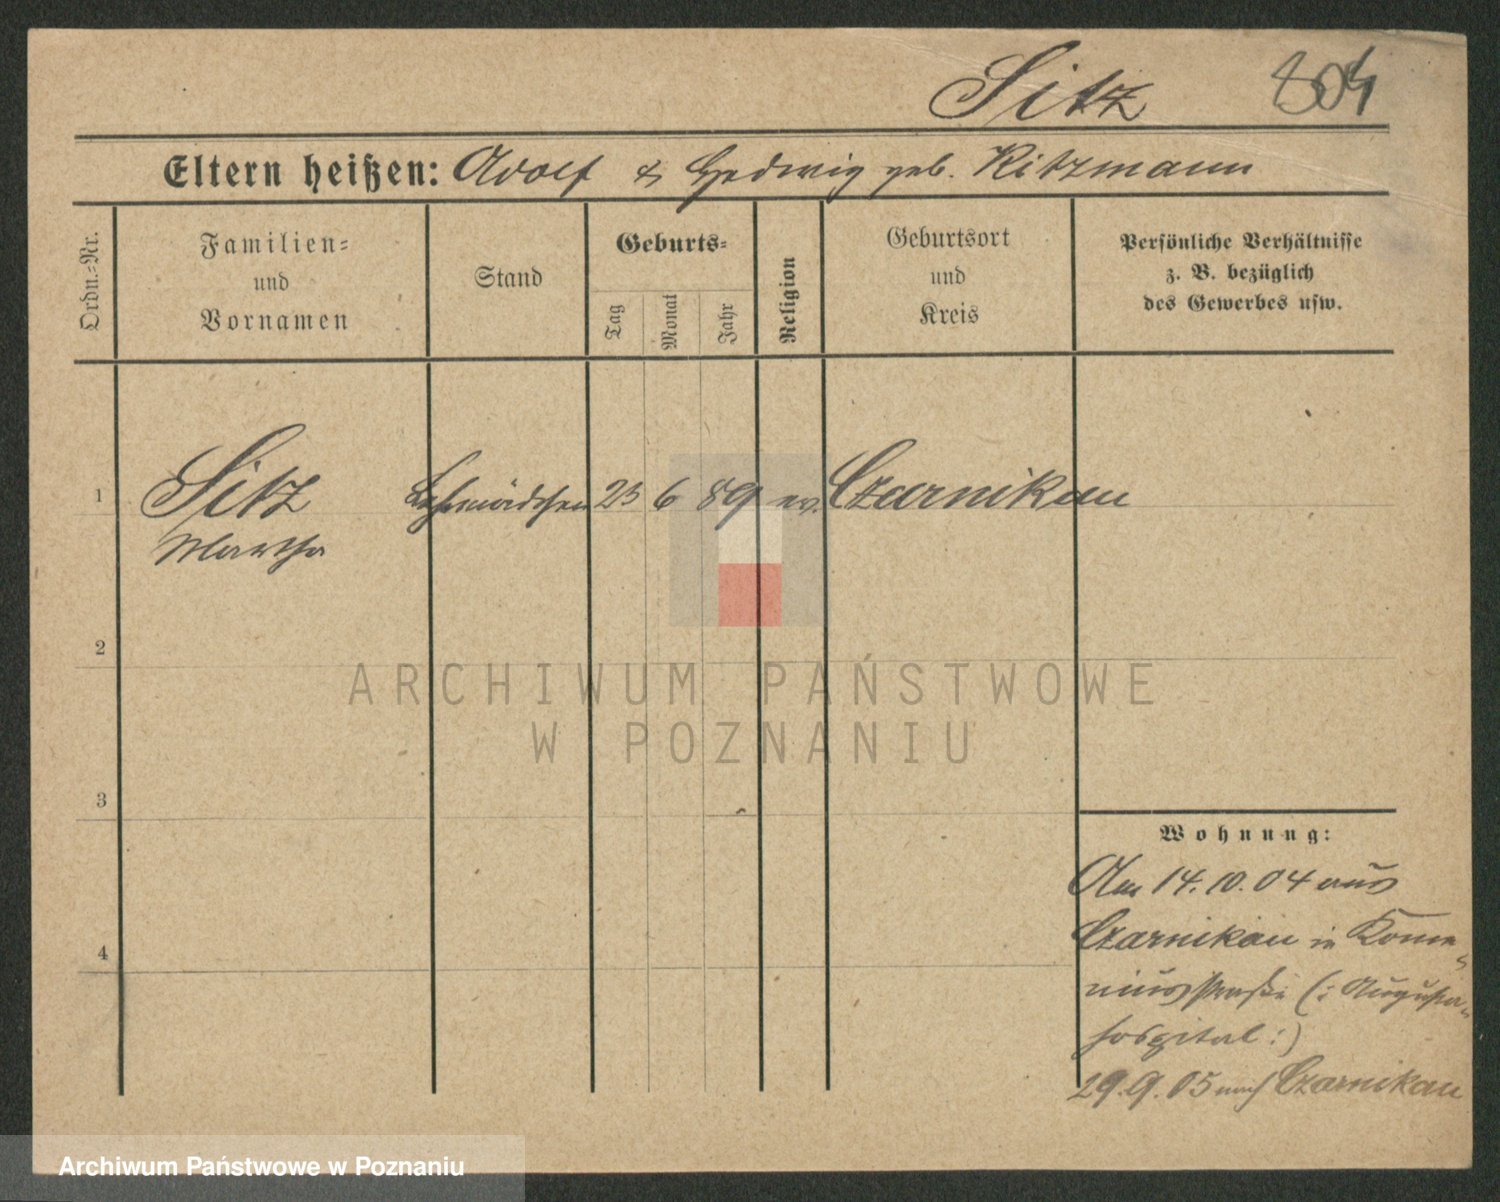 Sitz 804
Eltern heißen: Adolf & Hedwig geb. Ritzmann
Ordn.-Nr.
Familien-
und
Vornamen
Stand
Geburts-
Tag
Monat
Jahr
Religion
Geburtsort
und
Kreis
Persönliche Verhältnisse
z. B. bezüglich
des Gewerbes usw.
1 Sitz Lehrmädchen 23 6 89 ev. Czarnikau
Martha
2
3
4
Wohnung:
Am 14.10.04 aus
Czarnikau in Kome-
niusstraße (: Augusta-
hospital :)
29.9.05 nach Czarnikau
ARCHIWUM PAŃSTWOWE
W POZNANIU
Archiwum Państwowe w Poznaniu